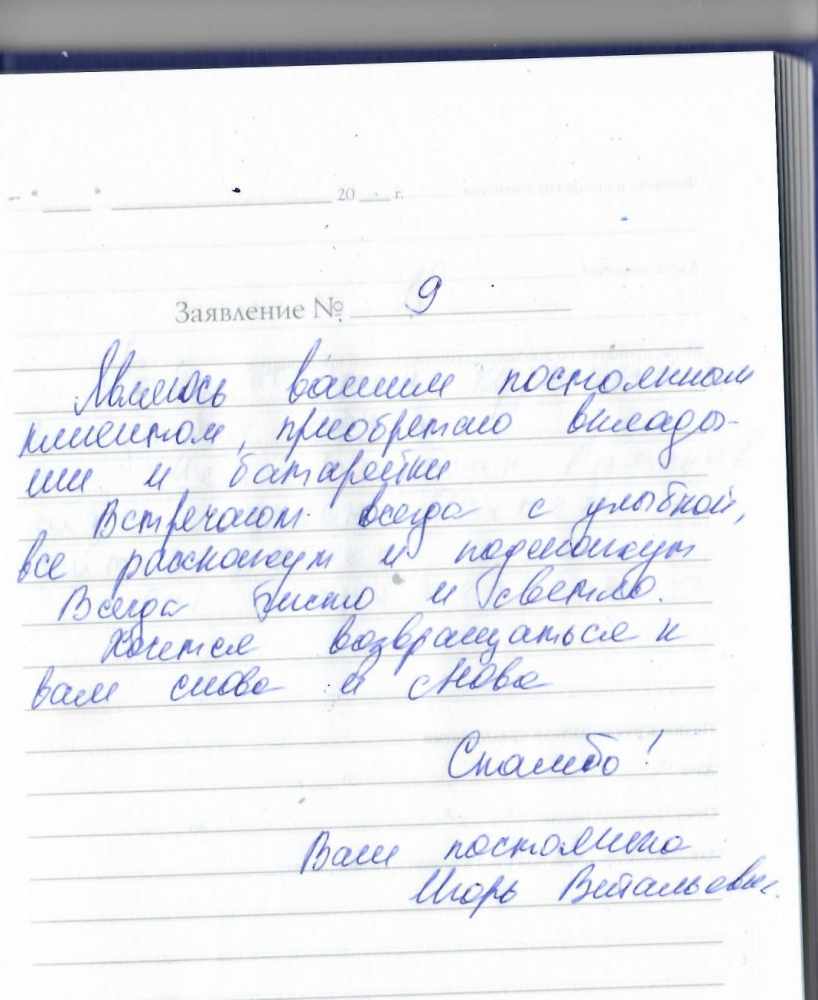 " " 20 г.
Заявление № 9
Являюсь вашим постоянным
клиентом, приобретаю вклады-
ши и батарейки
Встречают всегда с улыбкой,
все расскажут и подскажут
Всегда чисто и светло.
Хочется возвращаться к
вам снова и снова
Спасибо!
Ваш постоянно
Игорь Витальевич.